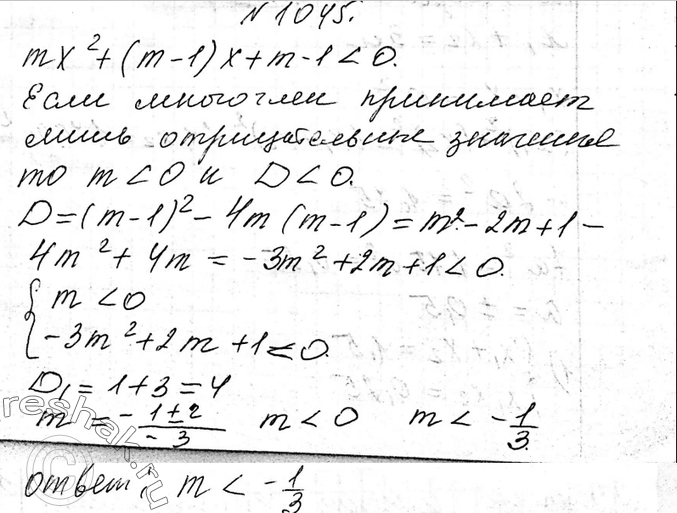 N 1045.
mx² + (m-1)x + m-1 < 0.
Если многочлен принимает
лишь отрицательные значение
то m < 0 и D < 0.
D = (m-1)² - 4m(m-1) = m² - 2m + 1 -
4m² + 4m = -3m² + 2m + 1 < 0.
{ m < 0
-3m² + 2m + 1 < 0.
D₁ = 1 + 3 = 4
m = -1±2/-3 m < 0 m < -1/3
ответ: m < -1/3
reshak.ru